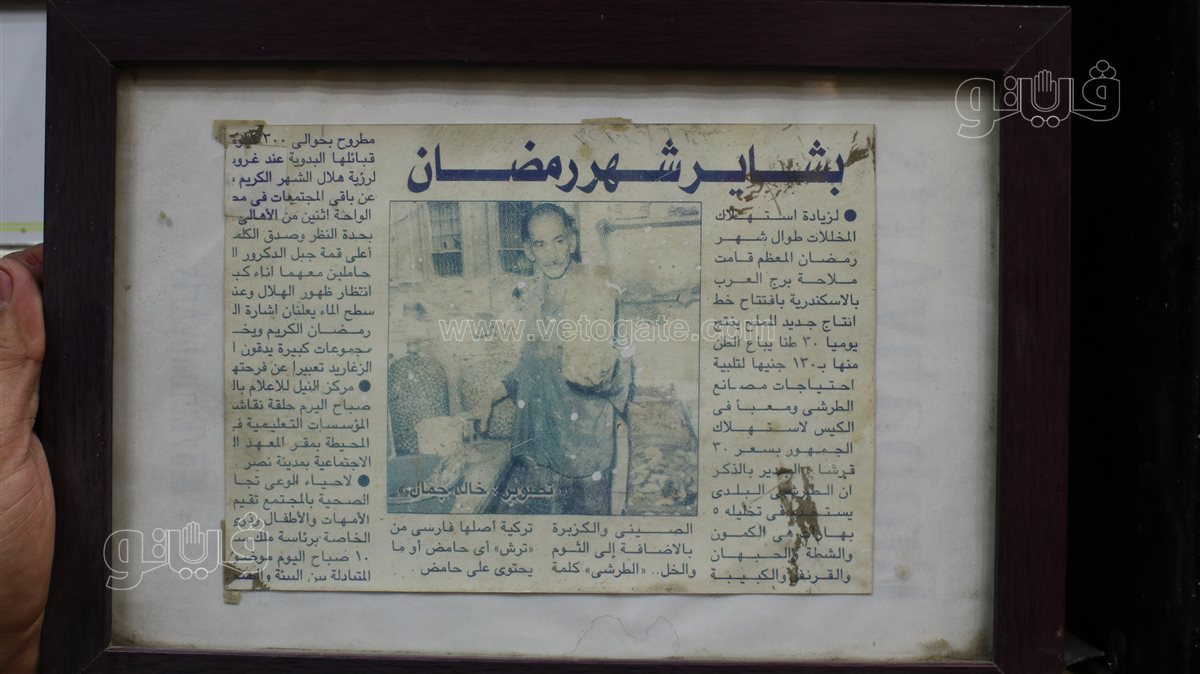 ڤيتو
بشاير شهر رمضان
● لزيادة استهلاك
المخللات طوال شهر
رمضان المعظم قامت
ملاحة برج العرب
بالاسكندرية بافتتاح خط
انتاج جديد للملح ينتج
يوميا ٣٠ طنا يباع الطن
منها بـ١٣٠ جنيها لتلبية
احتياجات مصانع
الطرشى ومعبأ فى
الكيس لاستهلاك
الجمهور بسعر ٣٠
قرشا. الجدير بالذكر
ان الطرشى البلدى
يستخدم فى تخليله ٥
بهارات هى الكمون
والشطة والحبهان
والقرنفل والكبيبة
www.vetogate.com
تصوير: خالد جمال
الصينى والكزبرة
بالاضافة إلى الثوم
والخل.. «الطرشى» كلمة
تركية أصلها فارسى من
«ترش» أى حامض أو ما
يحتوى على حامض.
مطروح بحوالى ٣٠٠
قبائلها البدوية عند غروب
لرؤية هلال الشهر الكريم
عن باقى المجتمعات فى
الواحة اثنين من الأهالى
بحدة النظر وصدق
أعلى قمة جبل الدكرور
حاملين معهما اناء
انتظار ظهور الهلال
سطح الماء يعلنان إشارة
رمضان الكريم
مجموعات كبيرة يدقون
الزغاريد تعبيرا عن فرحتهم
● مركز النيل للاعلام
صباح اليوم حلقة
المؤسسات التعليمية
المحيطة بمقر المعهد
الاجتماعية بمدينة نصر
● لاحياء الوعى
الصحية بالمجتمع تقيم
الأمهات والأطفال
الخاصة برئاسة ملك
١٠ صباح اليوم
المتبادلة بين البيئة
ڤيتو